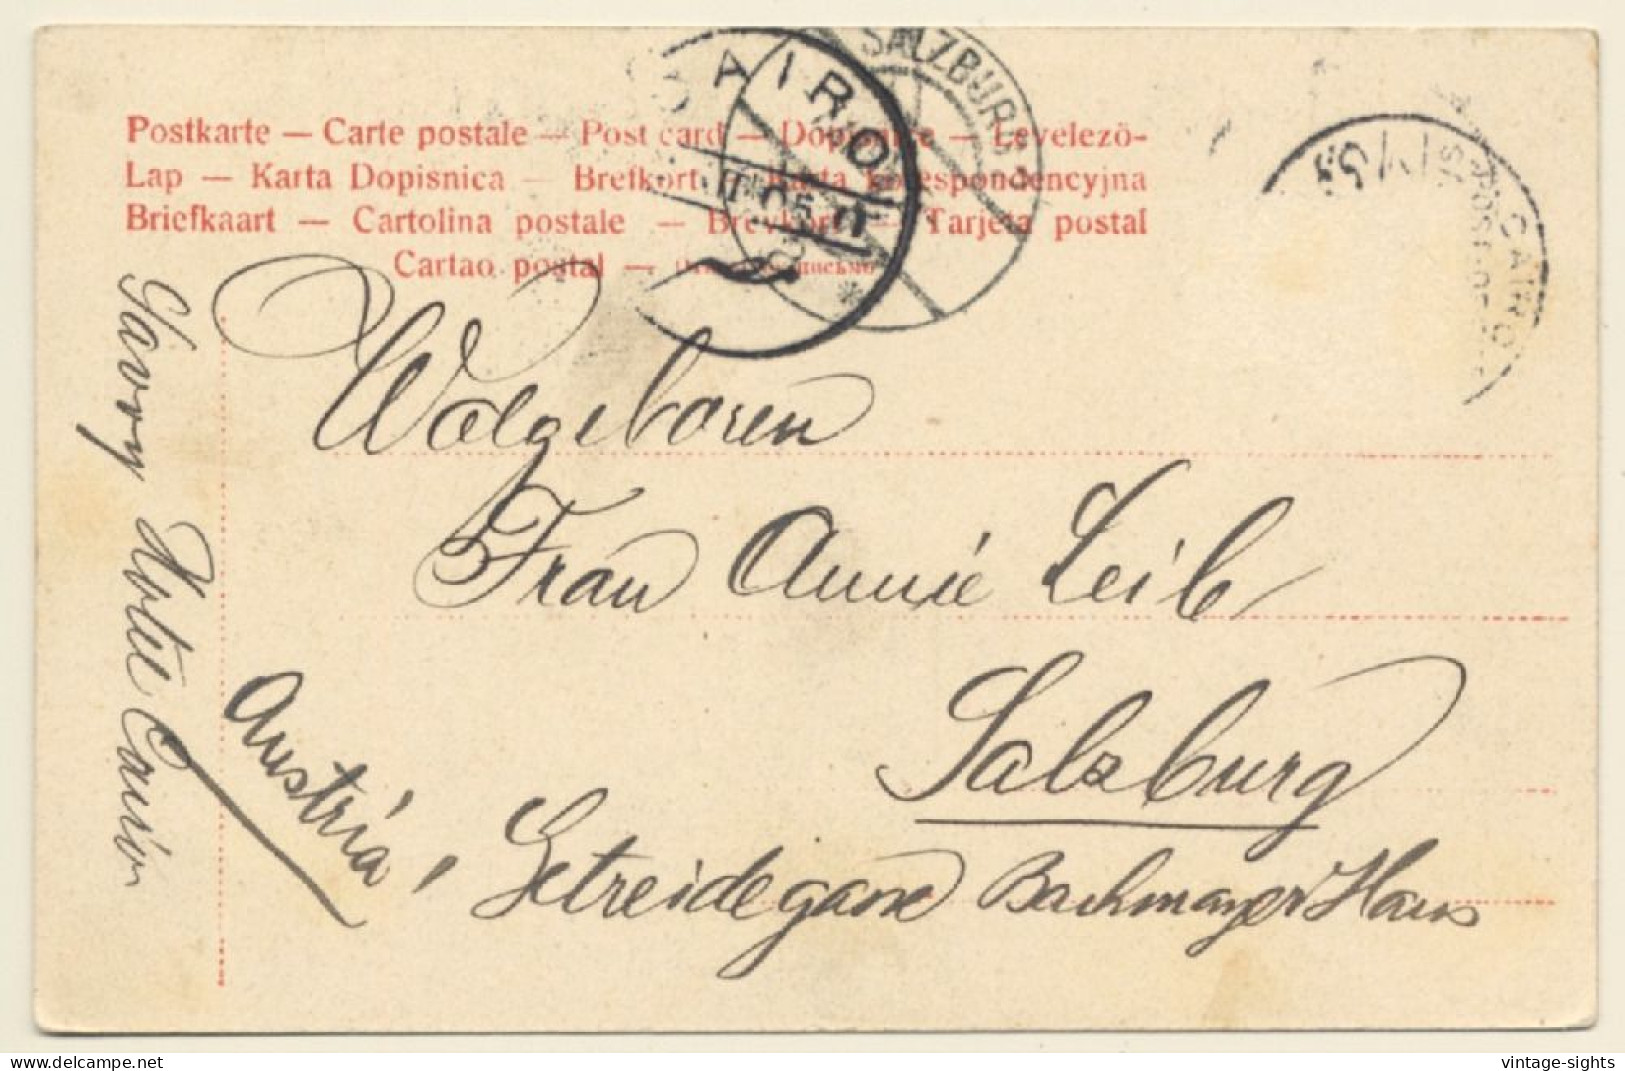 Postkarte — Carte postale — Post card — Dopisnice — Levelezö-
Lap — Karta Dopisnica — Brefkort — Karta korespondencyjna
Briefkaart — Cartolina postale — Brevkort — Tarjeta postal
Cartao postal —
CAIRO
SALZBURG
CAIRO
Wolgeboren
Frau Annie Leib
Salzburg
Austria, Getreidegasse Bachmayer Haus
Savoy Hotel Cairo
delcampe.net
vintage-sights